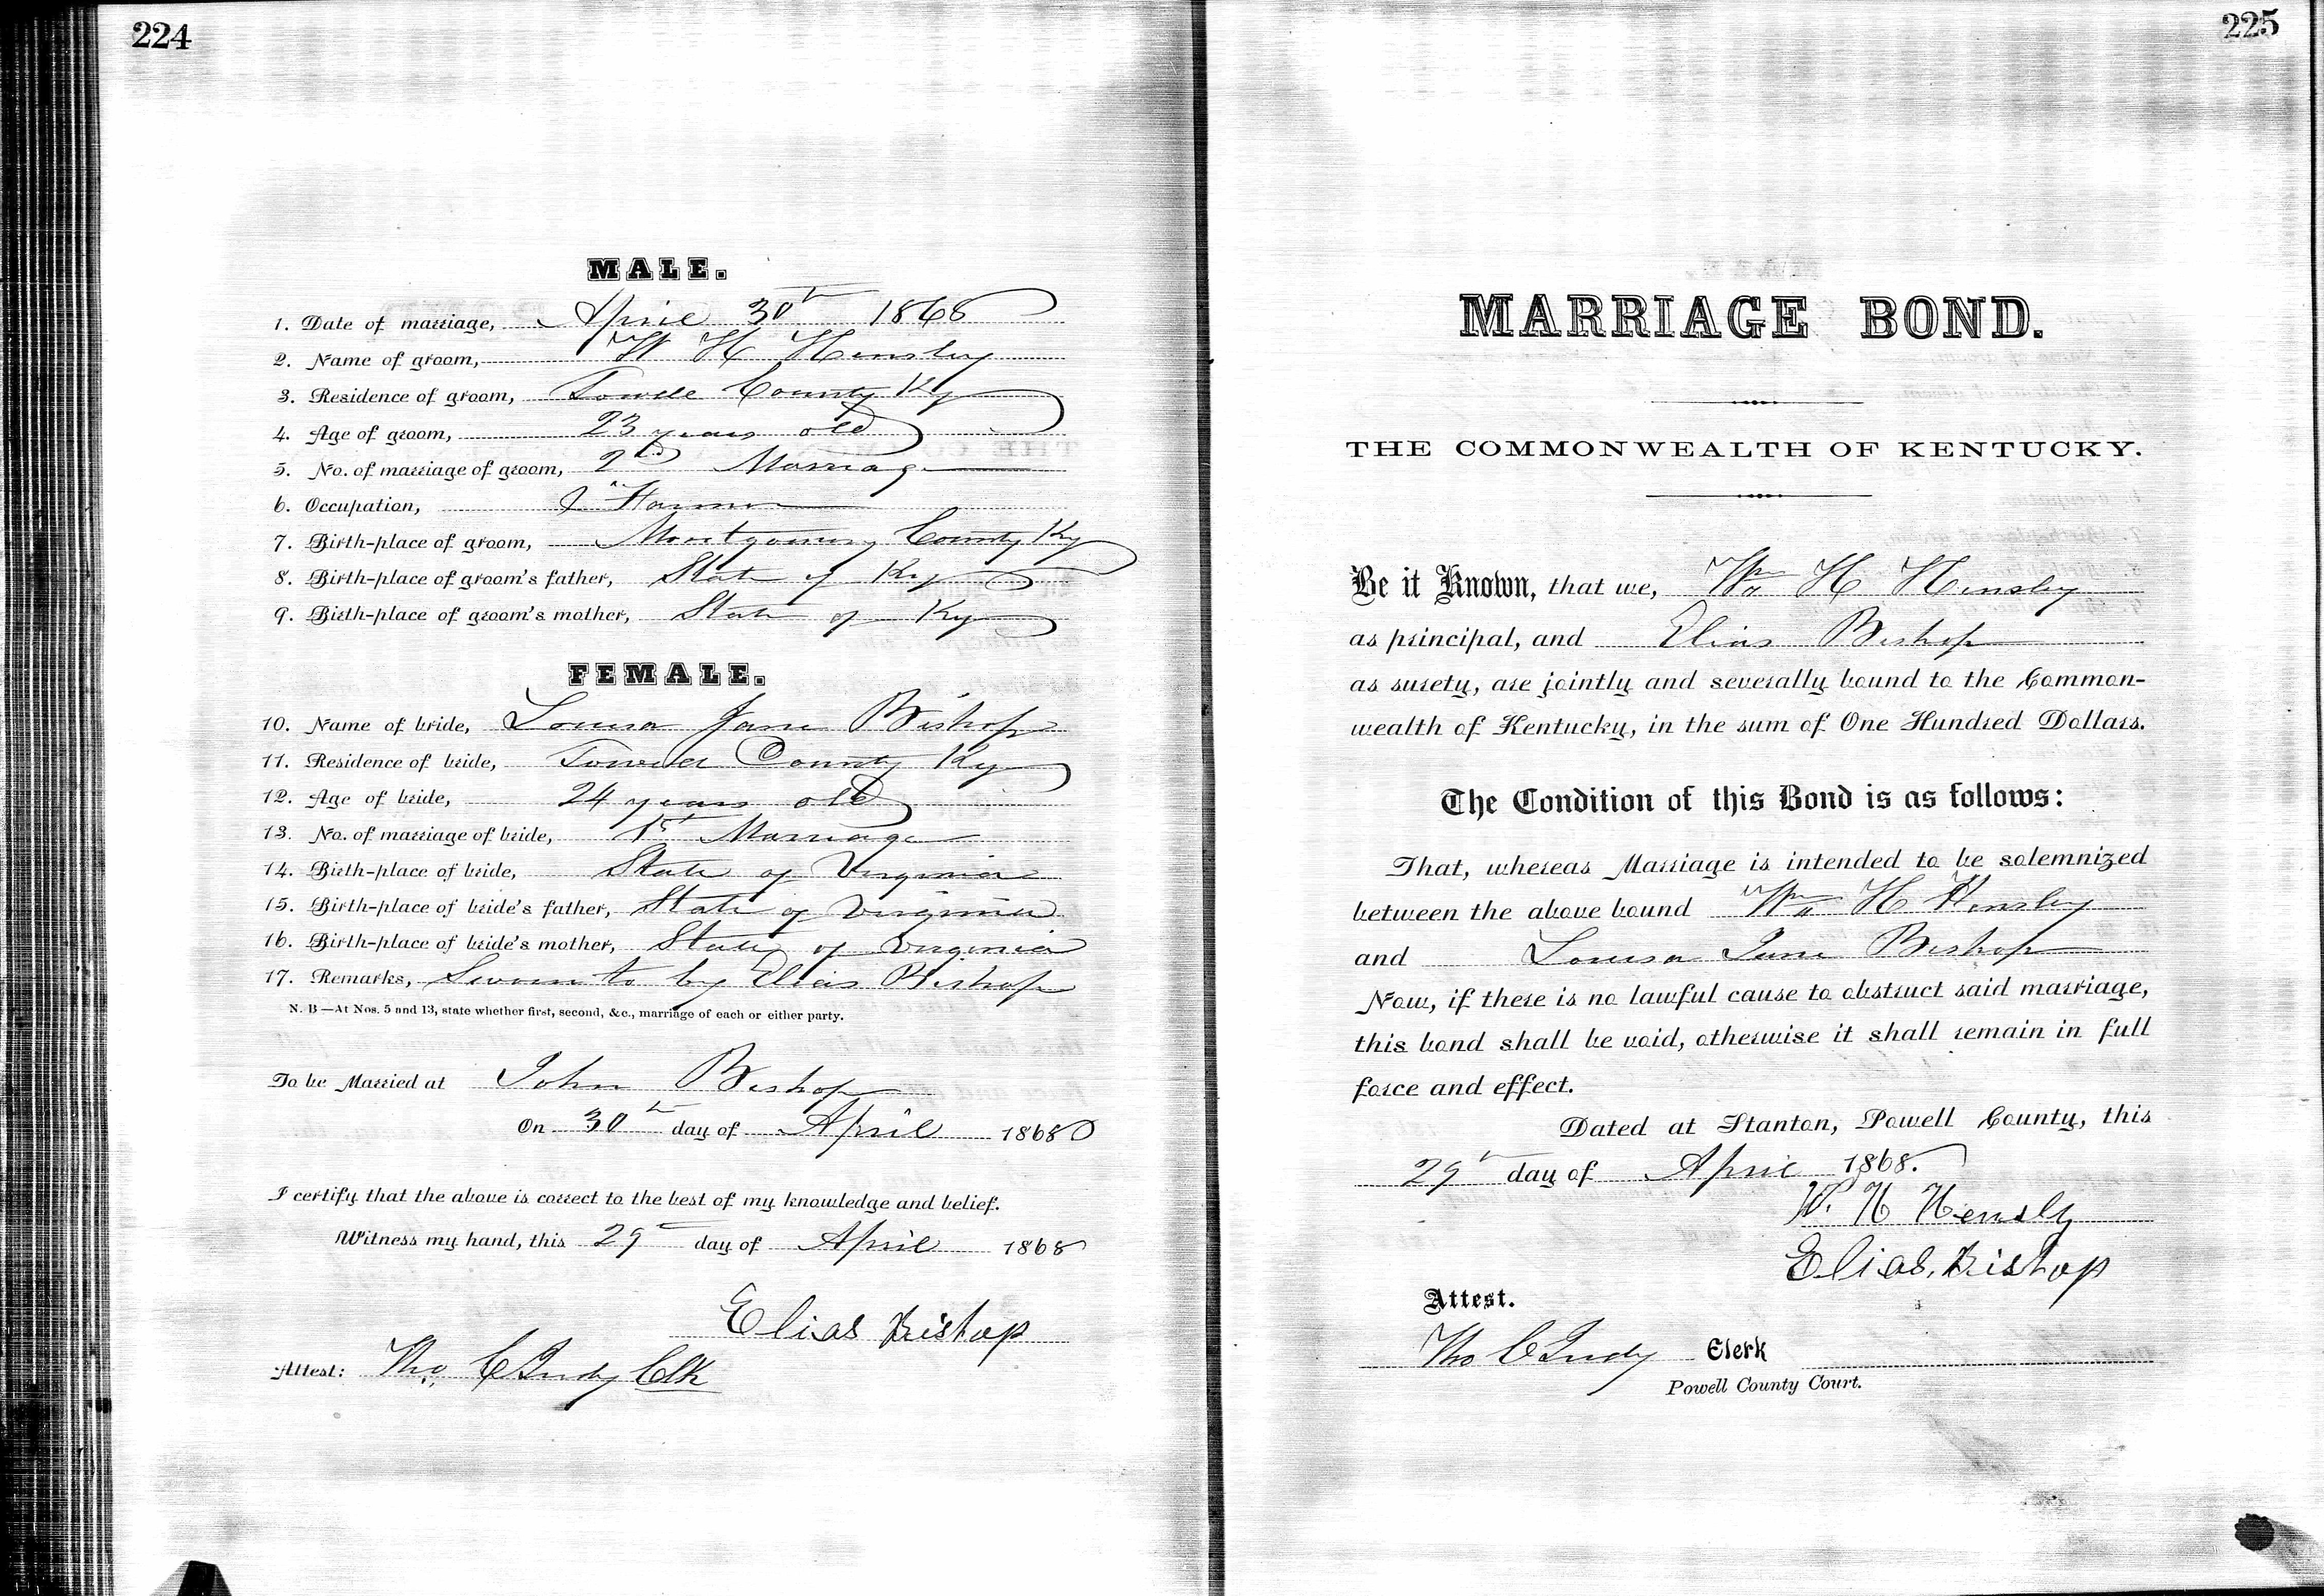 224
MALE.
1. Date of marriage, April 30th 1868
2. Name of groom, W H Hensley
3. Residence of groom, Powell County Ky
4. Age of groom, 23 years old
5. No. of marriage of groom, 2nd Marriage
6. Occupation, Farmer
7. Birth-place of groom, Montgomery County Ky
8. Birth-place of groom's father, State of Ky
9. Birth-place of groom's mother, State of Ky
FEMALE.
10. Name of bride, Louisa Jane Bishop
11. Residence of bride, Powell County Ky
12. Age of bride, 24 years old
13. No. of marriage of bride, 1st Marriage
14. Birth-place of bride, State of Virginia
15. Birth-place of bride's father, State of Virginia
16. Birth-place of bride's mother, State of Virginia
17. Remarks, Sworn to by Elias Bishop
N. B—At Nos. 5 and 13, state whether first, second, &c., marriage of each or either party.
To be Married at John Bishop
On 30th day of April 1868
I certify that the above is correct to the best of my knowledge and belief.
Witness my hand, this 29th day of April 1868
Elias Bishop
Attest: Tho. C Judy Clk
225
MARRIAGE BOND.
THE COMMONWEALTH OF KENTUCKY.
Be it Known, that we, Wm H Hensley
as principal, and Elias Bishop
as surety, are jointly and severally bound to the Common-
wealth of Kentucky, in the sum of One Hundred Dollars.
The Condition of this Bond is as follows:
That, whereas Marriage is intended to be solemnized
between the above bound Wm H Hensley
and Louisa Jane Bishop
Now, if there is no lawful cause to obstruct said marriage,
this bond shall be void, otherwise it shall remain in full
force and effect.
Dated at Stanton, Powell County, this
29th day of April 1868.
W. H Hensly
Elias Bishop
Attest.
Tho C Judy Clerk
Powell County Court.